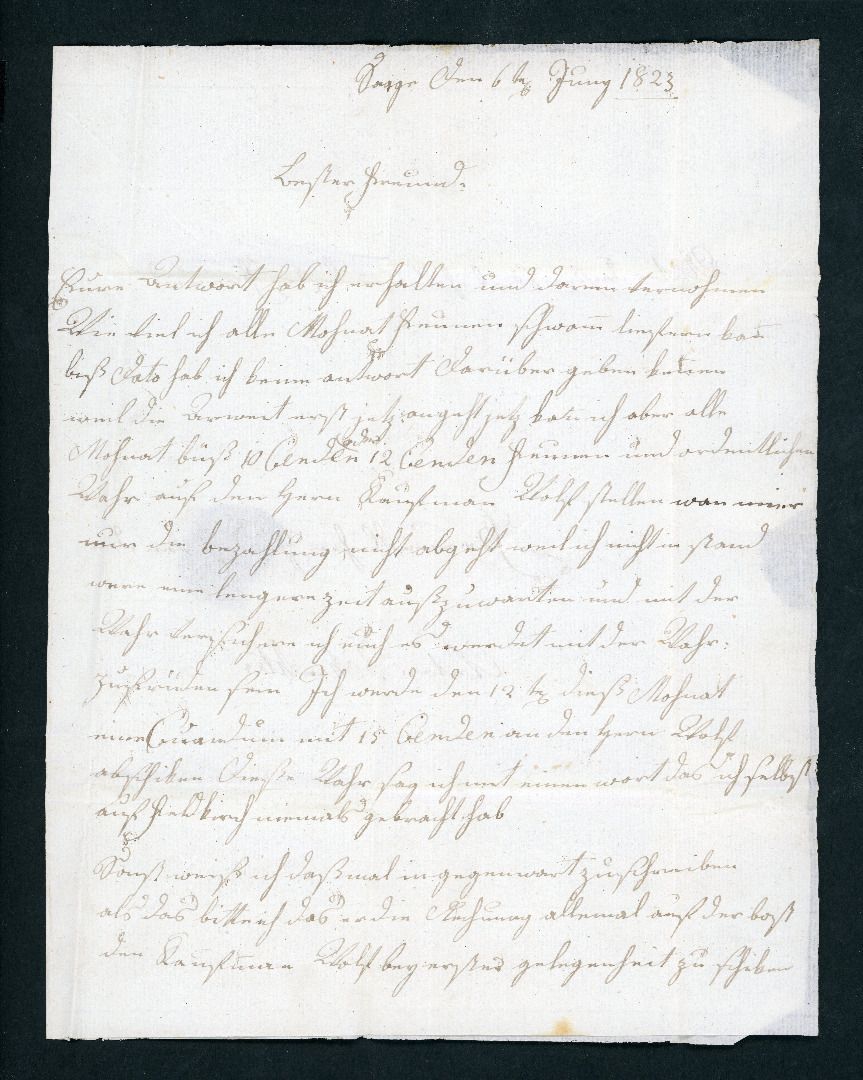 den 6 tn Juny 1823
Bester Freund.
Eure Antwort hab ich erhalten und darin vernohmen
Wie viel ich alle Mohnat schwam liefern kan
biß Dato hab ich keine antwort darüber geben kenen
weil die arweit erst jetz angeht jetz kan ich aber alle
Mohnat biß 10 Cenden oder 12 Cenden und ordentlichen
Wahr auf den Hern Kaufman Wolf stellen wan mier
nur die bezahlung nicht abgeht weil ich nicht im stand
were eine lengere zeit außzuwarten und mit der
Wahr versichere ich euch es werdet mit der Wahr
zufriden sein Ich werde den 12 tn dieß Mohnat
eine Quandum mit 15 Cenden an den Hern Wolf
abschiken Diese Wahr sag ich mit einem wort das ich selbst
auf Feldkirch niemals gebracht hab
Sonst weiß ich daßmal in gegenwart zu schreiben
als das bitte ich das er die Rechnung allemal auf der bost
den Kaufman Wolf bey erster gelegenheit zu schiken